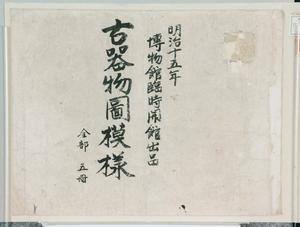 明治十五年
博物館臨時開館出品
古器物圖模様
全部 五冊